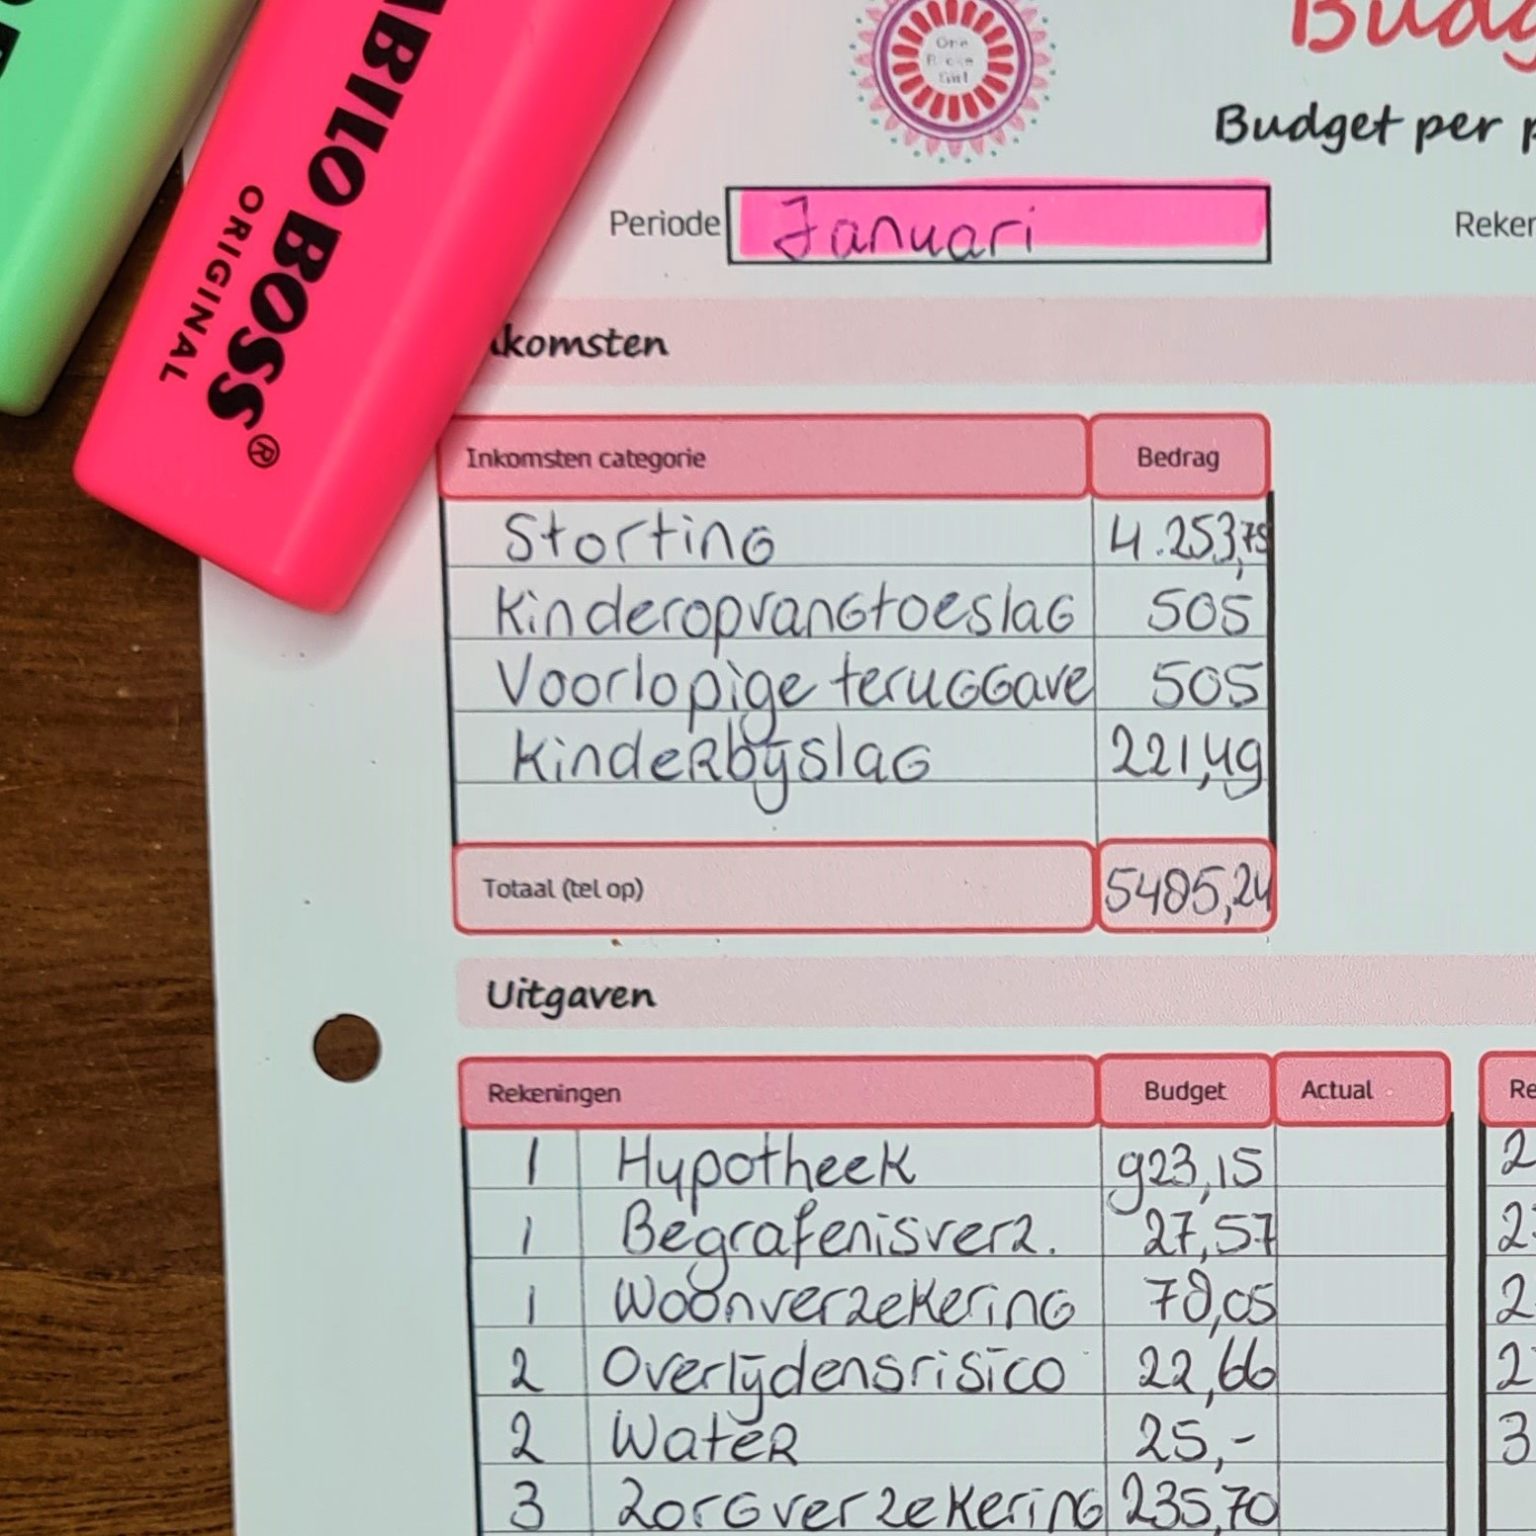 ABILO BOSS®
ORIGINAL
One
Girl
Budg
Budget per p
Periode
Januari
Reker
nkomsten
Inkomsten categorie Bedrag
Storting 4.253,75
Kinderopvangtoeslag 505
Voorlopige teruggave 505
Kinderbijslag 221,49
Totaal (tel op) 5485,24
Uitgaven
Rekeningen Budget Actual Re
1 Hypotheek 923,15 2
1 Begrafenisverz. 27,57 2
1 Woonverzekering 78,05 2
2 Overlijdensrisico 22,66 2
2 Water 25,- 3
3 Zorgverzekering 235,70